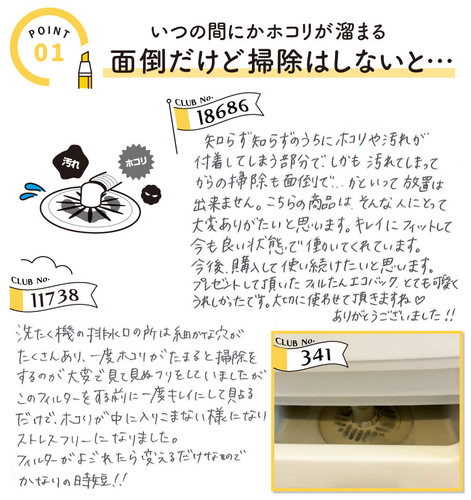 POINT
01
いつの間にかホコリが溜まる
面倒だけど掃除はしないと…
CLUB No.
18686
汚れ
ホコリ
知らず知らずのうちにホコリや汚れが
付着してしまう部分で、しかも汚れてしまって
からの掃除も面倒で… かといって放置は
出来ません。こちらの商品は、そんな人にとって
大変ありがたいと思います。キレイにフィットして
今も良い状態で働いてくれています。
今後、購入して使い続けたいと思います。
プレゼントして頂いたフィルたんエコバック、とても可愛く
うれしかったです。大切に使わせて頂きますね♡
ありがとうございました!!
CLUB No.
11738
洗たく機の排水口の所は細かな穴が
たくさんあり、一度ホコリがたまると掃除を
するのが大変で見て見ぬフリをしていましたが
このフィルターをする前に一度キレイにして見よる
だけで、ホコリが中に入りこまない様になり
ストレスフリーになりました。
フィルターがよごれたら変えるだけなので
かなりの時短!!
CLUB No.
341